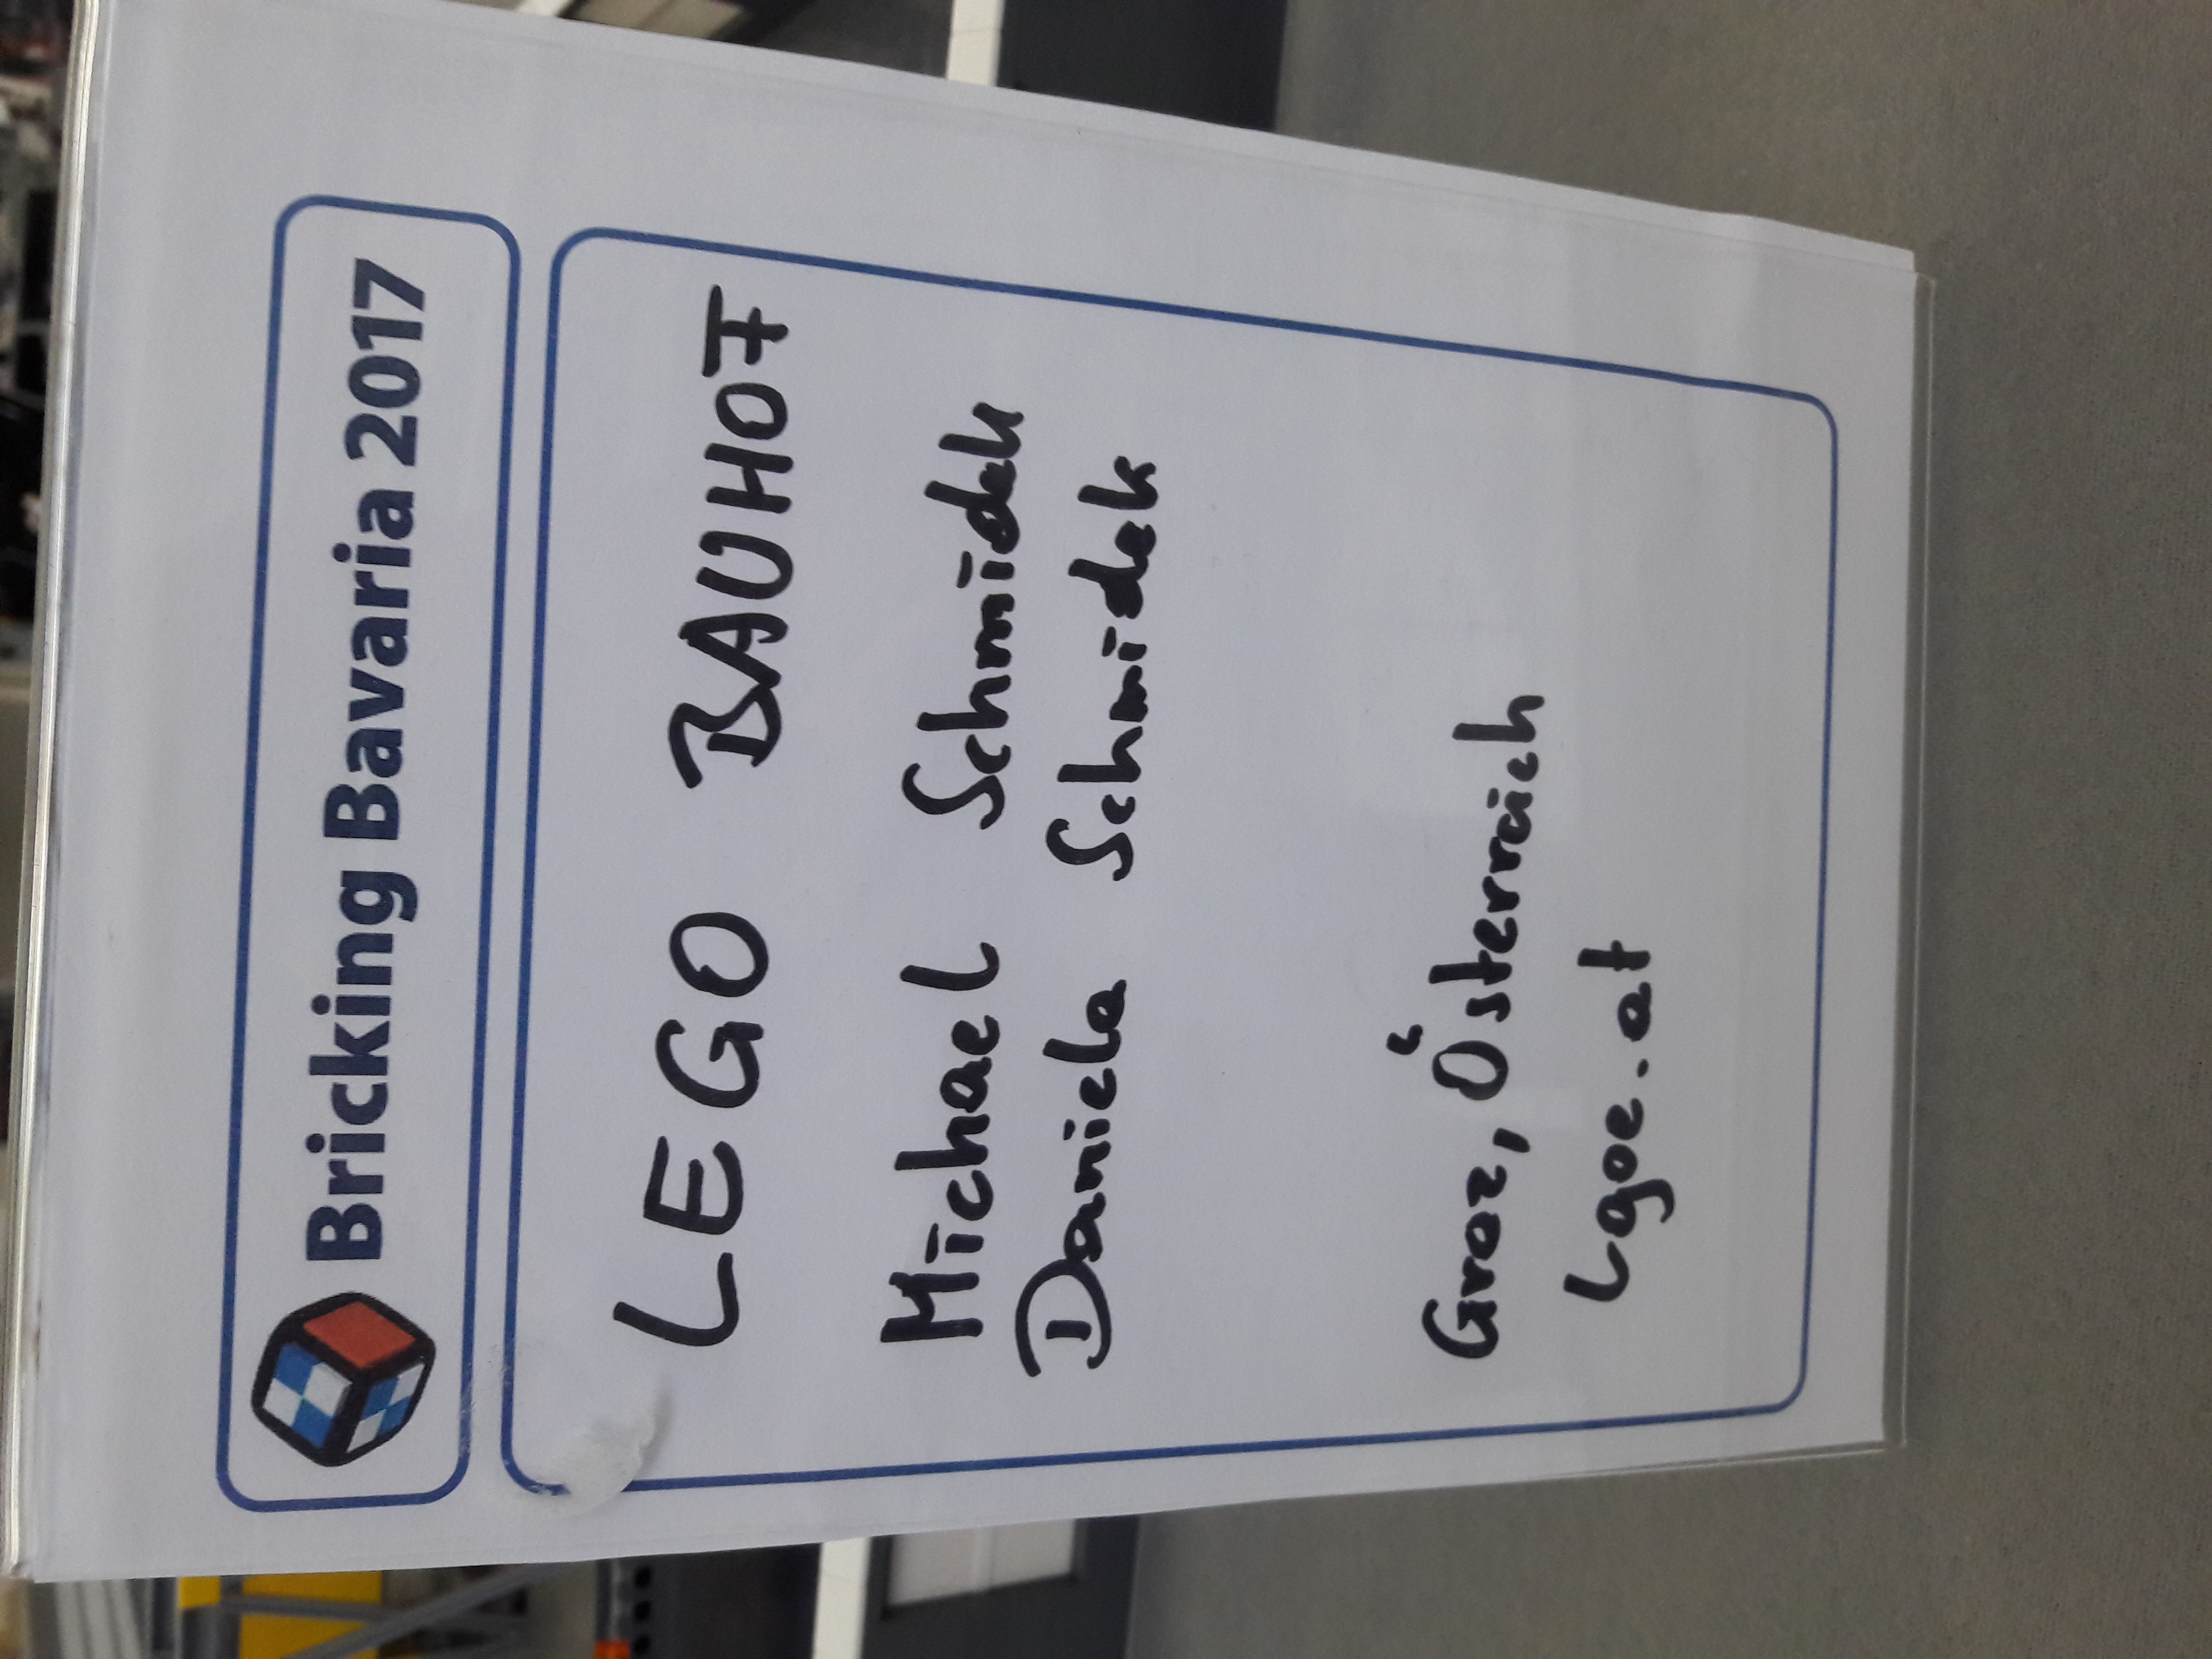 Bricking Bavaria 2017
LEGO BAUHOF
Michael Schmidek
Daniela Schmidek
Graz, Österreich
Lgoe.at